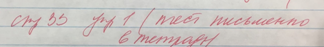 стр 33 упр 1 (тест письменно
в тетради